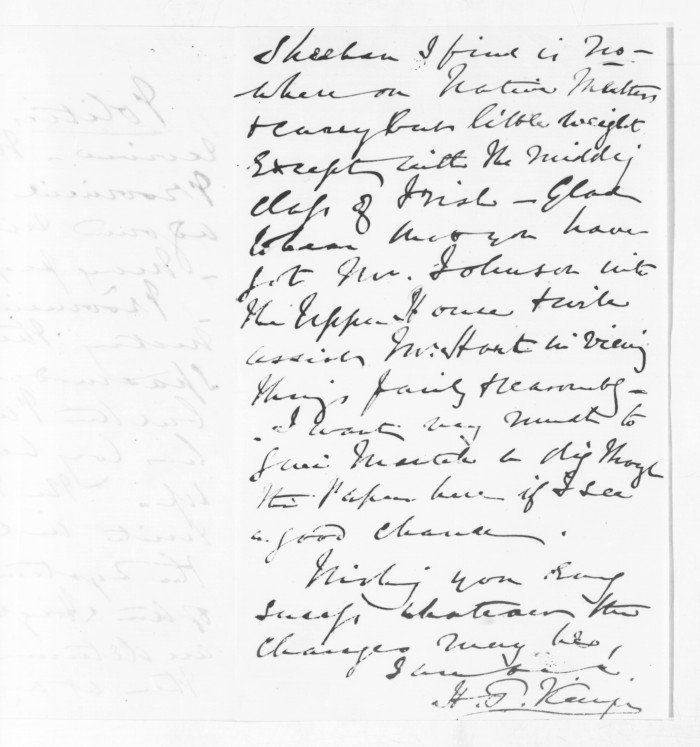 Sheehan I find is no-
where on Native Matters
& carry but little weight
Except with the middg
class of Irish – Glad
to hear you have
got Mr. Johnson into
the Upper House & will
assist Mr. Hart in Viewing
things fairly & reasonably –
I want very much to
give a dig through
the Paper here if I see
a good chance.
Wishing you every
success whatever the
changes may be,
I am
H. T. Kemp